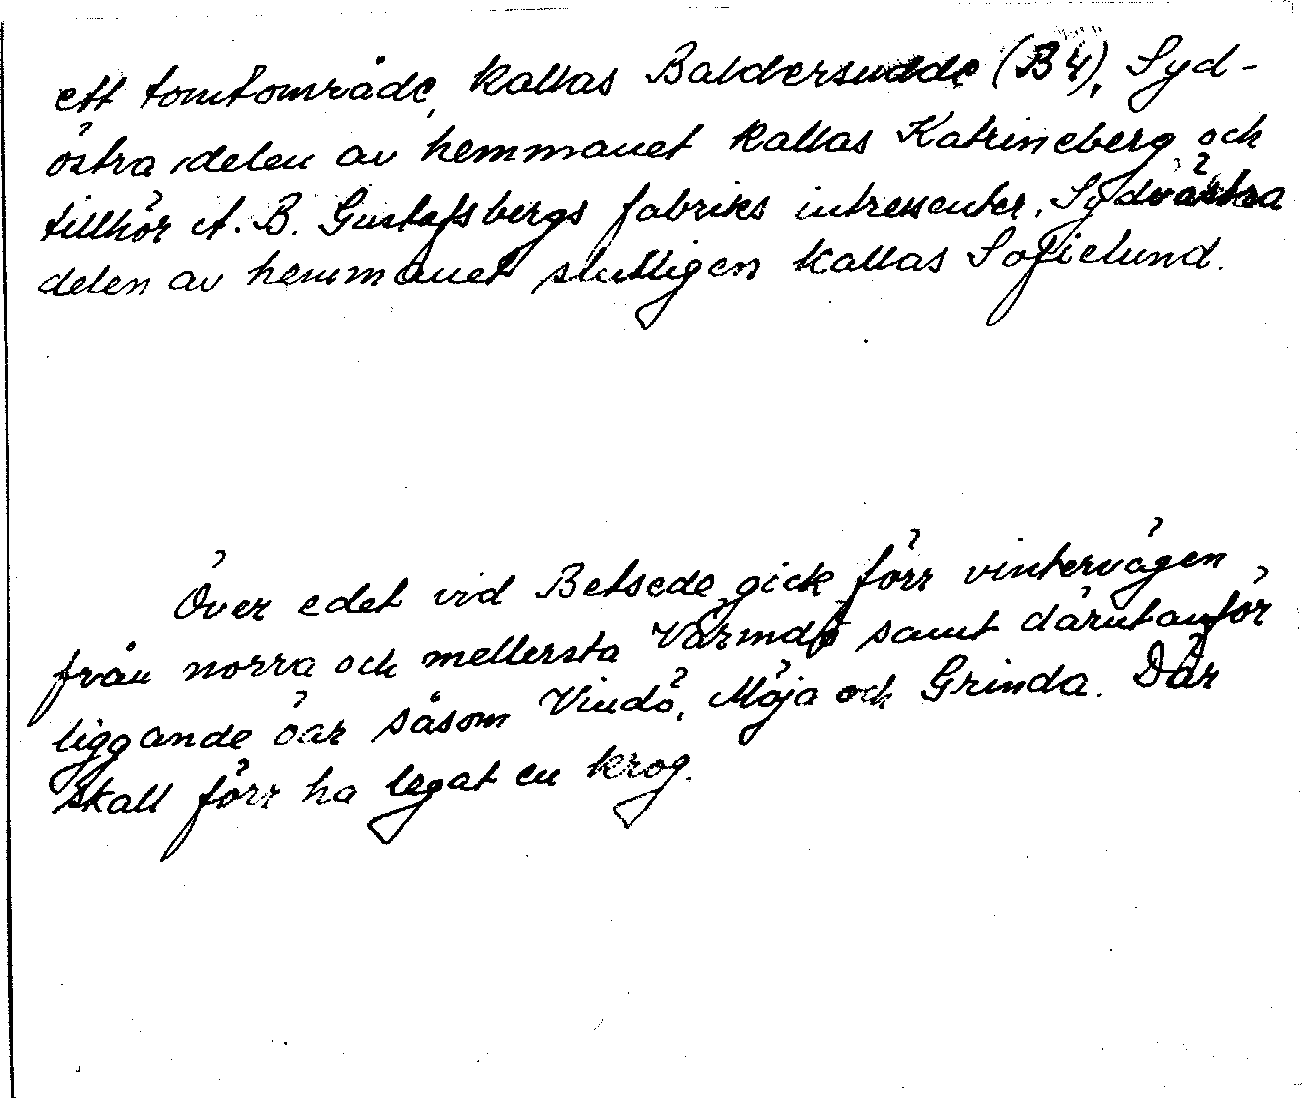 ett tomtområde, kallas Baldersudde (B4). Syd-
östra delen av hemmanet kallas Katrineberg och
tillhör A. B. Gustafsbergs fabriks intressenter. Sydvästra
delen av hemmanet slutligen kallas Sofielund.
Över edet vid Betsede gick förr vintervägen
från norra och mellersta Värmdö samt därutanför
liggande öar såsom Vindö, Möja och Grinda. Där
skall förr ha legat en krog.